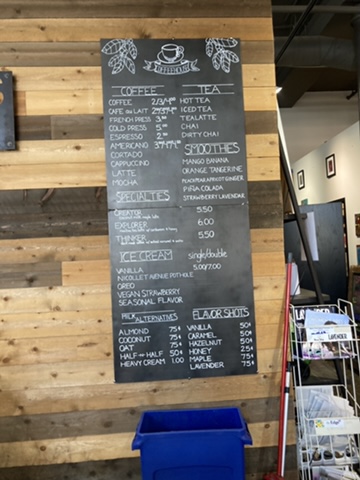 COFFEE
COFFEE
CAFE au LAIT
FRENCH PRESS 3.00
COLD PRESS 5.00
ESPRESSO 2.00
AMERICANO
CORTADO
CAPPUCCINO
LATTE
MOCHA
TEA
HOT TEA
ICED TEA
TEA LATTE
CHAI
DIRTY CHAI
SMOOTHIES
MANGO BANANA
ORANGE TANGERINE
PEACH PEAR APRICOT GINGER
PIÑA COLADA
STRAWBERRY LAVENDAR
SPECIALTIES
CREATOR 5.50
EXPLORER 6.00
THINKER 5.50
ICE CREAM single/double
5.00/7.00
VANILLA
NICOLLET AVENUE POTHOLE
OREO
VEGAN STRAWBERRY
SEASONAL FLAVOR
MILK ALTERNATIVES
ALMOND 75¢
COCONUT 75¢
OAT 75¢
HALF and HALF 50¢
HEAVY CREAM 1.00
FLAVOR SHOTS
VANILLA 50¢
CARAMEL 50¢
HAZELNUT 50¢
HONEY 25¢
MAPLE 75¢
LAVENDER 75¢
LAVENDER